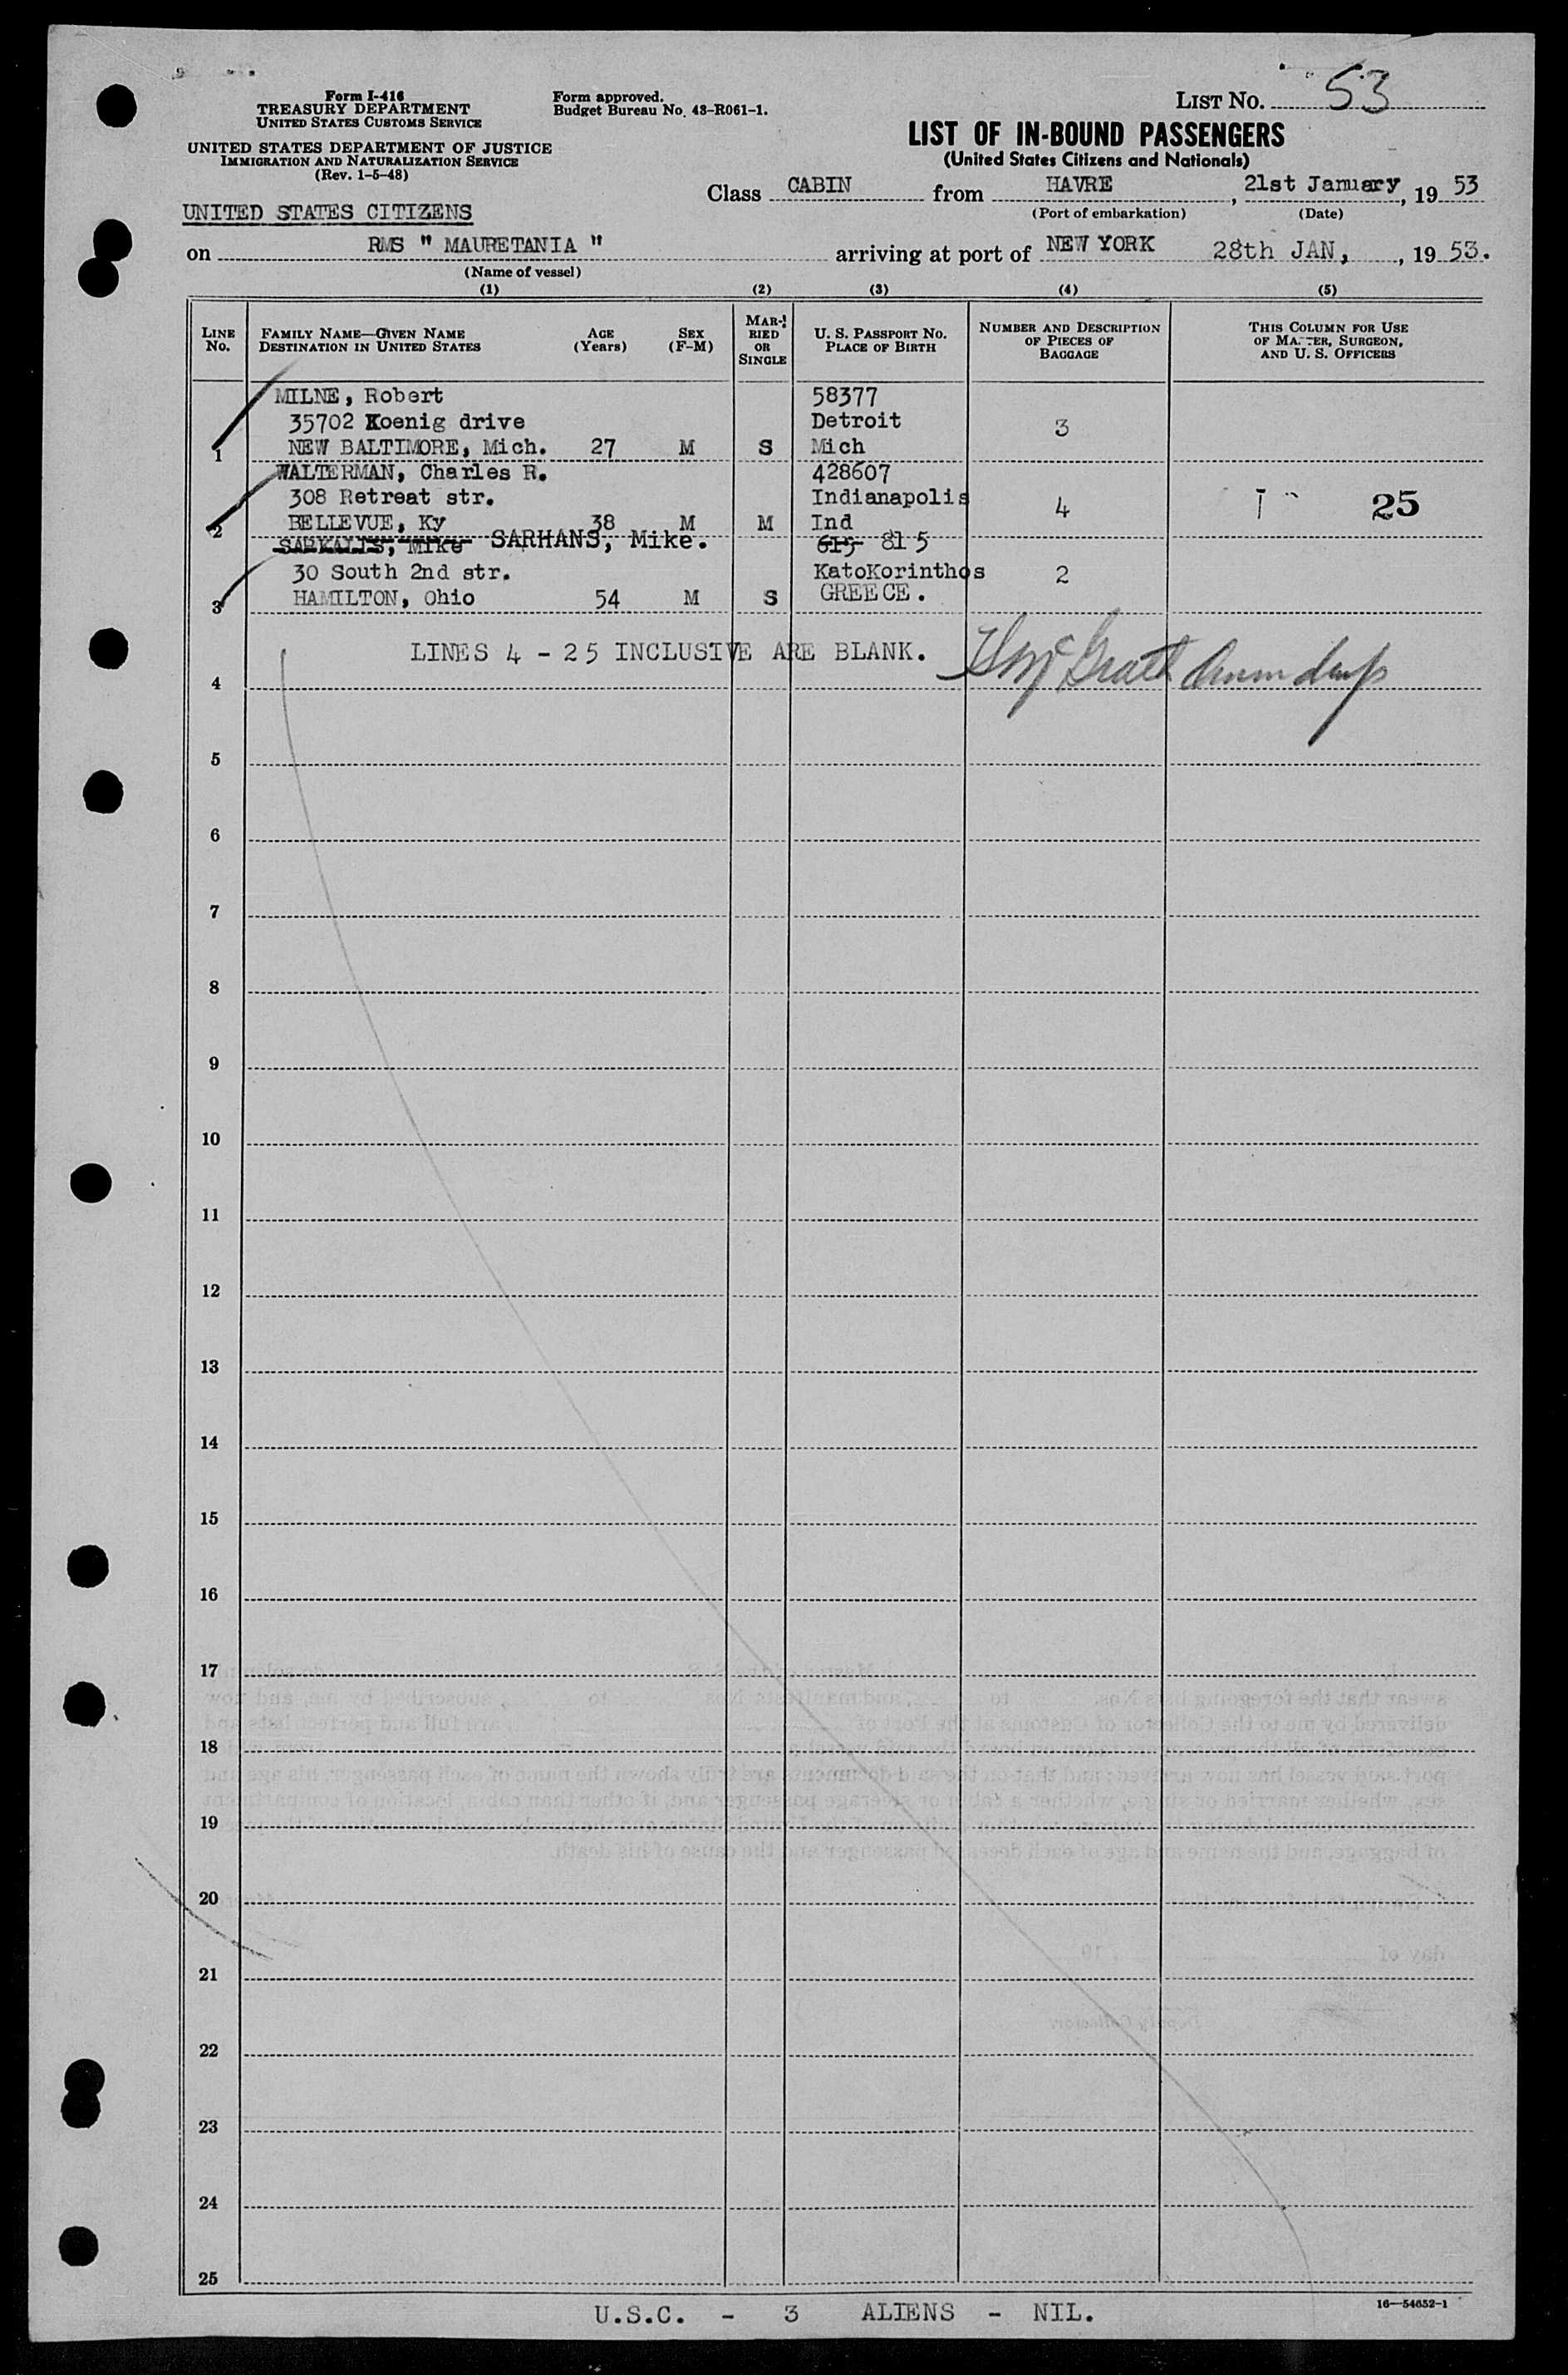 List No. 53
Form I-416
TREASURY DEPARTMENT
United States Customs Service
Form approved.
Budget Bureau No. 43-R061-1.
UNITED STATES DEPARTMENT OF JUSTICE
Immigration and Naturalization Service
(Rev. 1-5-48)
LIST OF IN-BOUND PASSENGERS
(United States Citizens and Nationals)
Class CABIN from HAVRE, 21st January, 19 53
(Port of embarkation) (Date)
UNITED STATES CITIZENS
on RMS " MAURETANIA " arriving at port of NEW YORK 28th JAN, , 19 53.
(Name of vessel)
(1) (2) (3) (4) (5)
Line No. Family Name—Given Name Destination in United States Age (Years) Sex (F-M) Married or Single U. S. Passport No. Place of Birth Number and Description of Pieces of Baggage This Column for Use of Master, Surgeon, and U. S. Officers
MILNE, Robert 58377
35702 Koenig drive Detroit 3
1 NEW BALTIMORE, Mich. 27 M S Mich
WALTERMAN, Charles R. 428607
308 Retreat str. Indianapolis 4 25
2 BELLEVUE, Ky 38 M M Ind
SARKALIS, Mike SARHANS, Mike. 615 815
30 South 2nd str. KatoKorinthos 2
3 HAMILTON, Ohio 54 M S GREECE.
LINES 4 - 25 INCLUSIVE ARE BLANK.
4
5
6
7
8
9
10
11
12
13
14
15
16
17
18
19
20
21
22
23
24
25
U.S.C. - 3 ALIENS - NIL.
16—54652-1